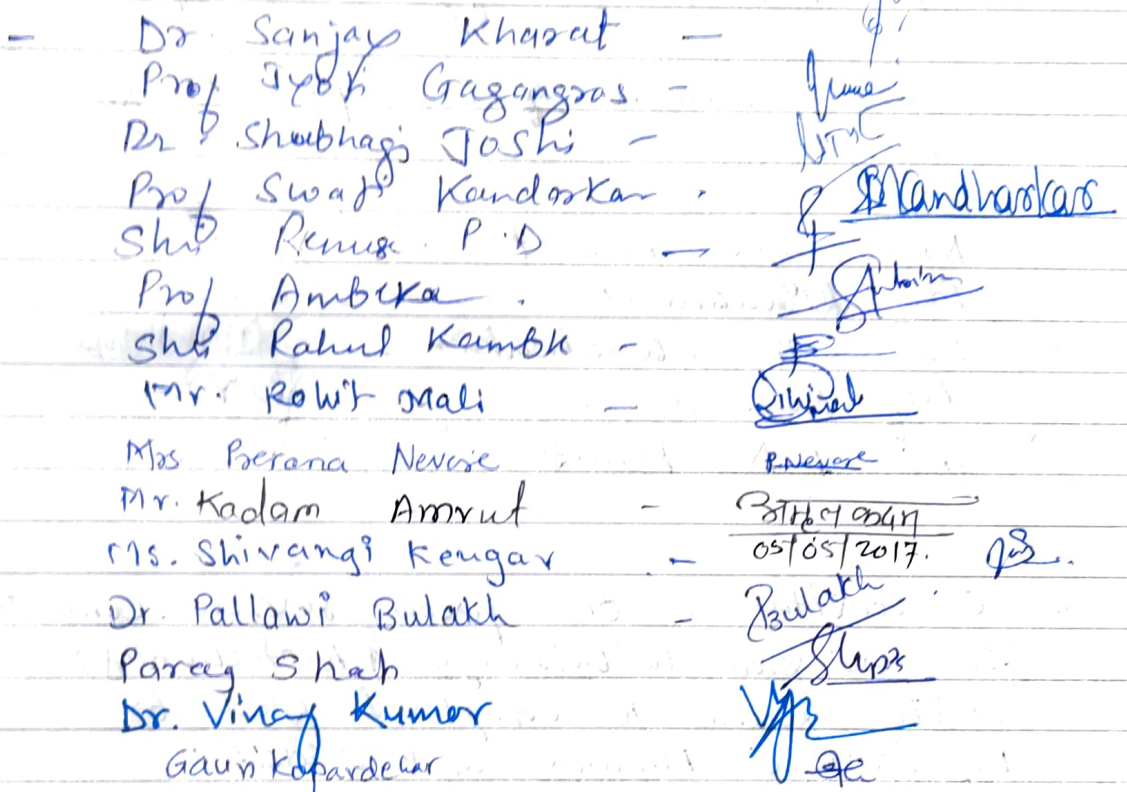 - Dr Sanjay Kharat -
Prof Jyoti Gagangras -
Dr Shubhagi Joshi -
Prof Swati Kandarkar . Kandharkar
Shri P.D -
Prof Ambika .
Shri Rahul Kamble -
Mr. Rohit Mali -
Mrs Prerana Nevase P.Nevase
Mr. Kadam Amrut - अमृत कदम
Ms. Shivangi Kengar - 05/05/2017.
Dr. Pallawi Bulakh - Bulakh
Parag Shah
Dr. Vinay Kumar
Gauri Kopardekar